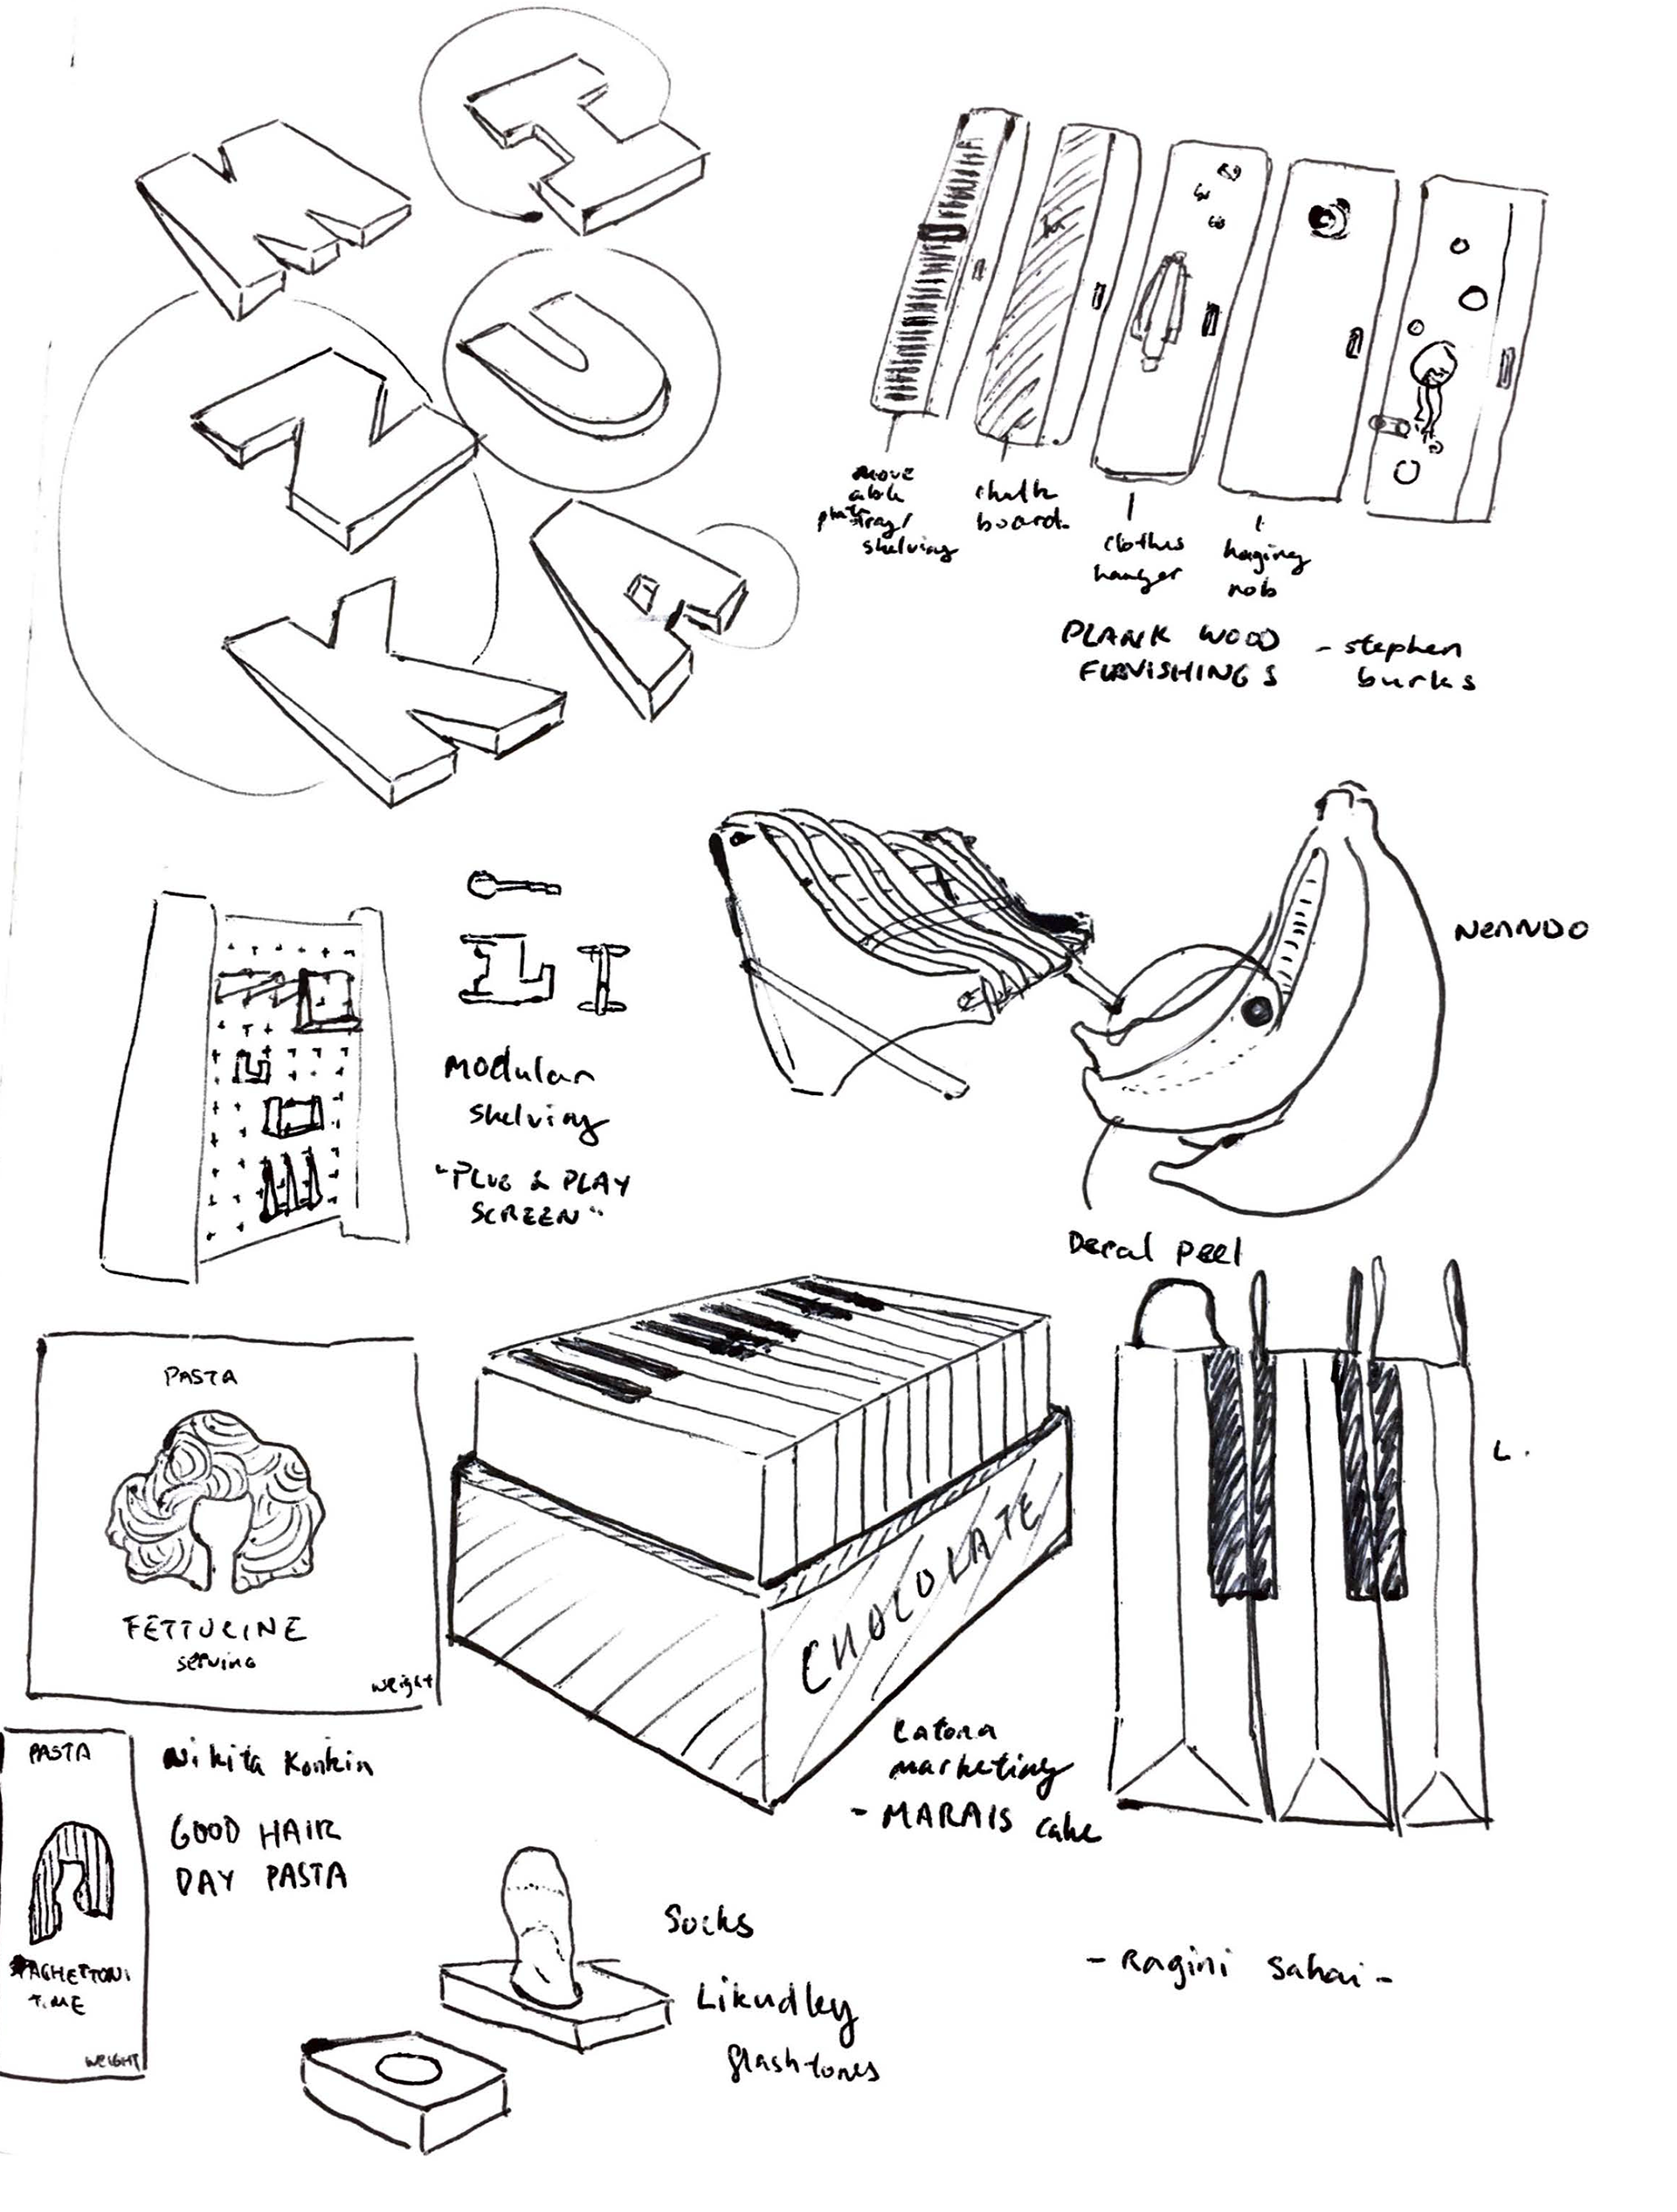 M
I
N
U
K
A
move
able
shelving
chalk
board
clothes
hanger
haging
nob
PLANK WOOD
FURNISHINGS
- stephen
burks
modular
shelving
"PLUG & PLAY
SCREEN"
NENNDO
Decal peel
PASTA
FETTUCINE
serving
weight
PASTA
SPAGHETTONI
TIME
WEIGHT
Nikita Konkin
GOOD HAIR
DAY PASTA
CHOCOLATE
Latona
marketing
- MARAIS cake
L.
Socks
Likudley
- Ragini Sahai -